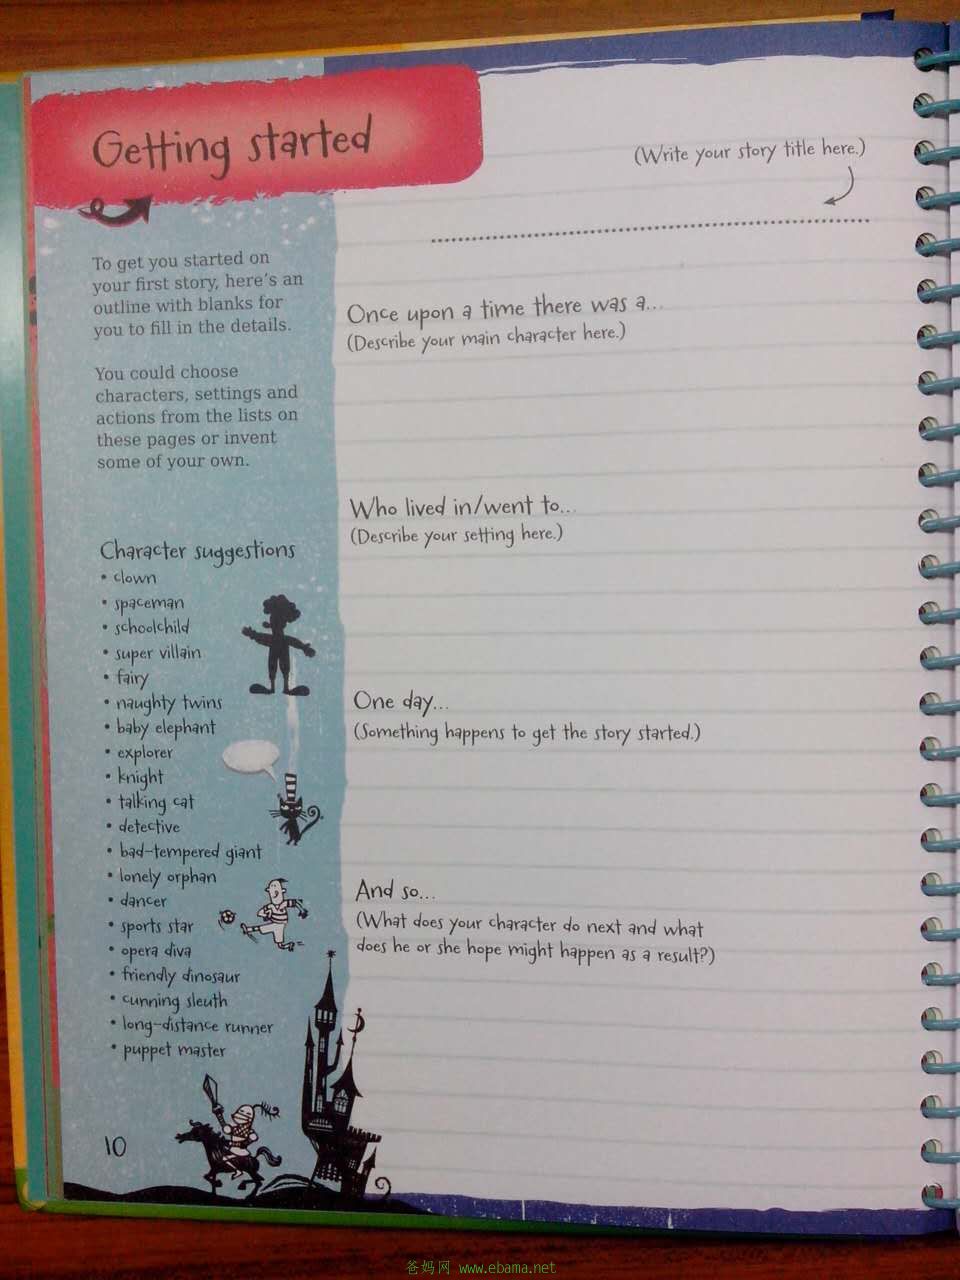 Getting started
To get you started on
your first story, here's an
outline with blanks for
you to fill in the details.
You could choose
characters, settings and
actions from the lists on
these pages or invent
some of your own.
Character suggestions
• clown
• spaceman
• schoolchild
• super villain
• fairy
• naughty twins
• baby elephant
• explorer
• knight
• talking cat
• detective
• bad-tempered giant
• lonely orphan
• dancer
• sports star
• opera diva
• friendly dinosaur
• cunning sleuth
• long-distance runner
• puppet master
10
(Write your story title here.)
Once upon a time there was a...
(Describe your main character here.)
Who lived in/went to...
(Describe your setting here.)
One day...
(Something happens to get the story started.)
And so...
(What does your character do next and what
does he or she hope might happen as a result?)
爸妈网 www.ebama.net